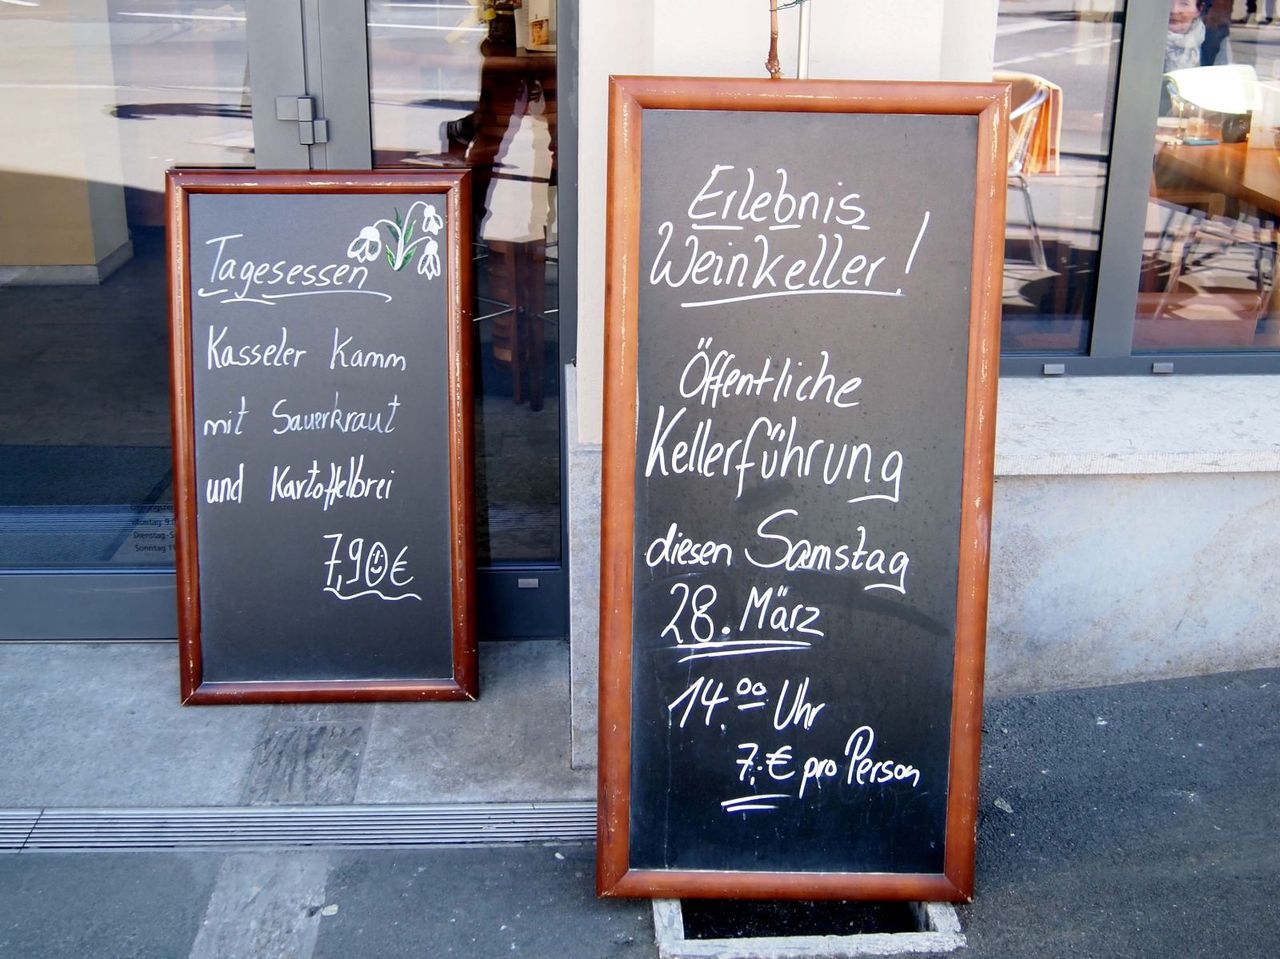 Tagesessen
Kasseler Kamm
mit Sauerkraut
und Kartoffelbrei
7,90€
Erlebnis
Weinkeller!
Öffentliche
Kellerführung
diesen Samstag
28. März
14.00 Uhr
7,-€ pro Person